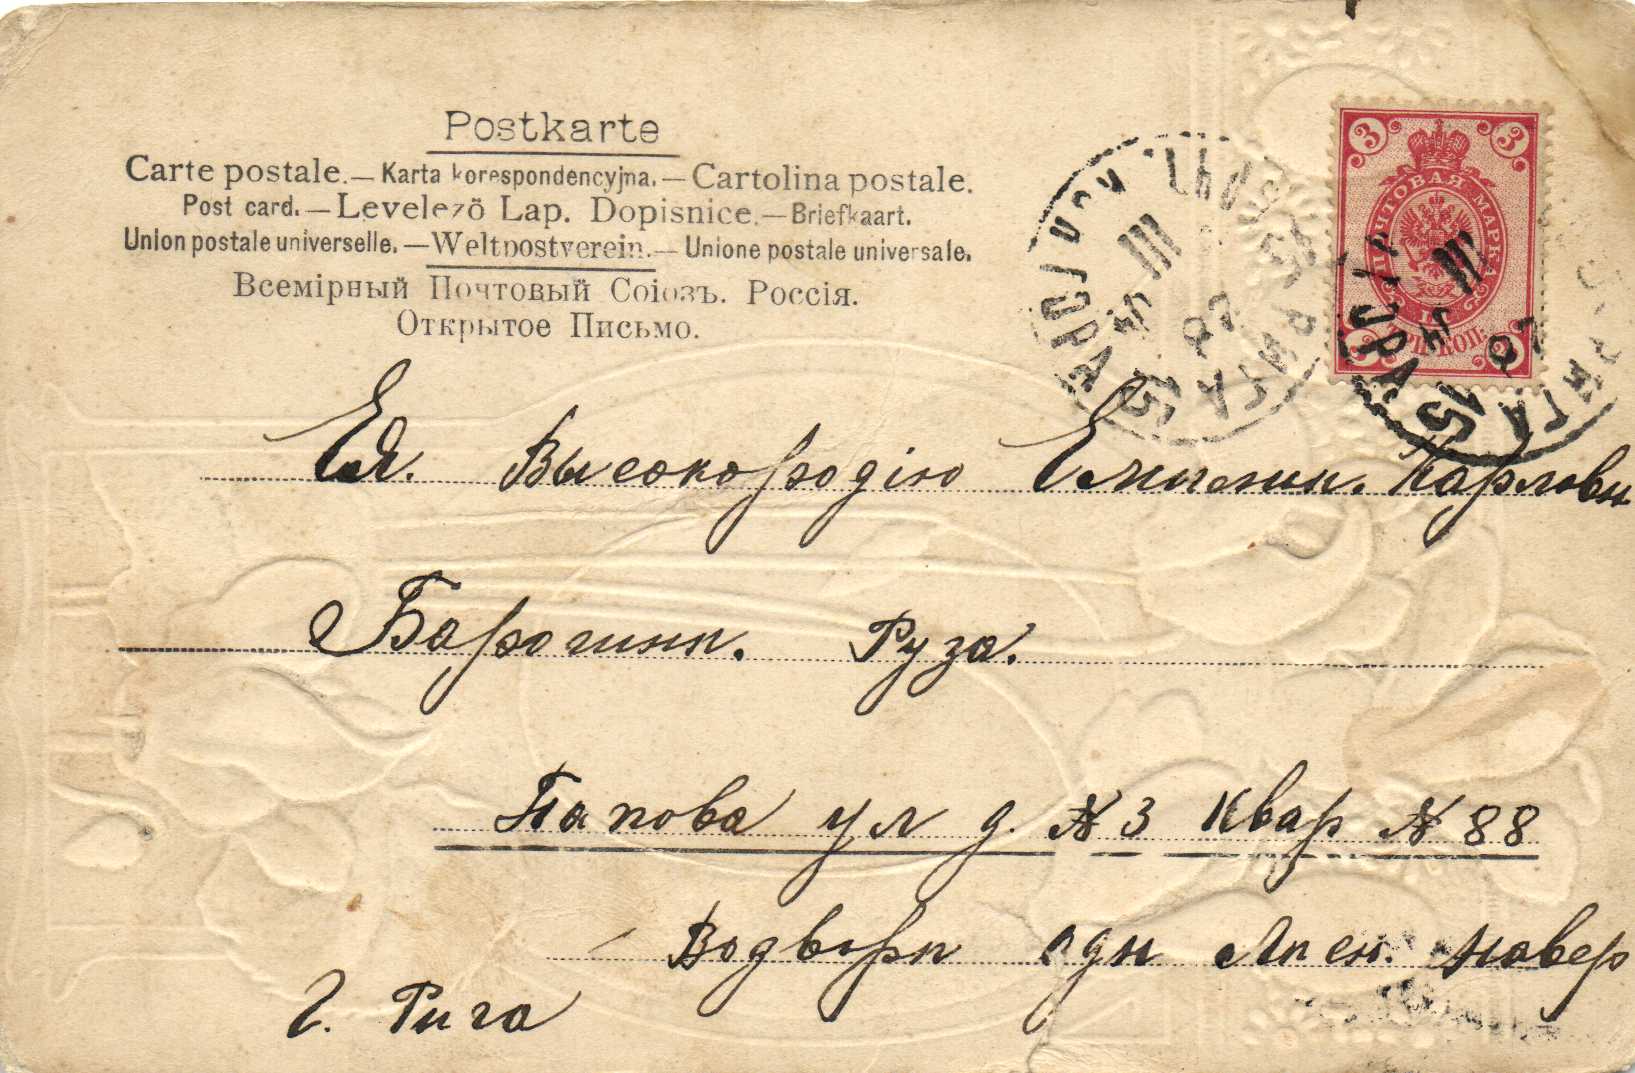 Postkarte
Carte postale. — Karta korespondencyjna. — Cartolina postale.
Post card. — Levelező Lap. Dopisnice. — Briefkaart.
Union postale universelle. — Weltpostverein. — Unione postale universale.
Всемірный Почтовый Союзъ. Россія.
Открытое Письмо.
3 3
ПОЧТОВАЯ МАРКА
ТРИ КОП.
3 3
III
15
РИГА
III
15
РИГА
Ея. Высокородію Емилии. Карловн
Руза.
Папова ул д. № 3 Квар № 88
Водворн одн Лпен. новер
г. Рига